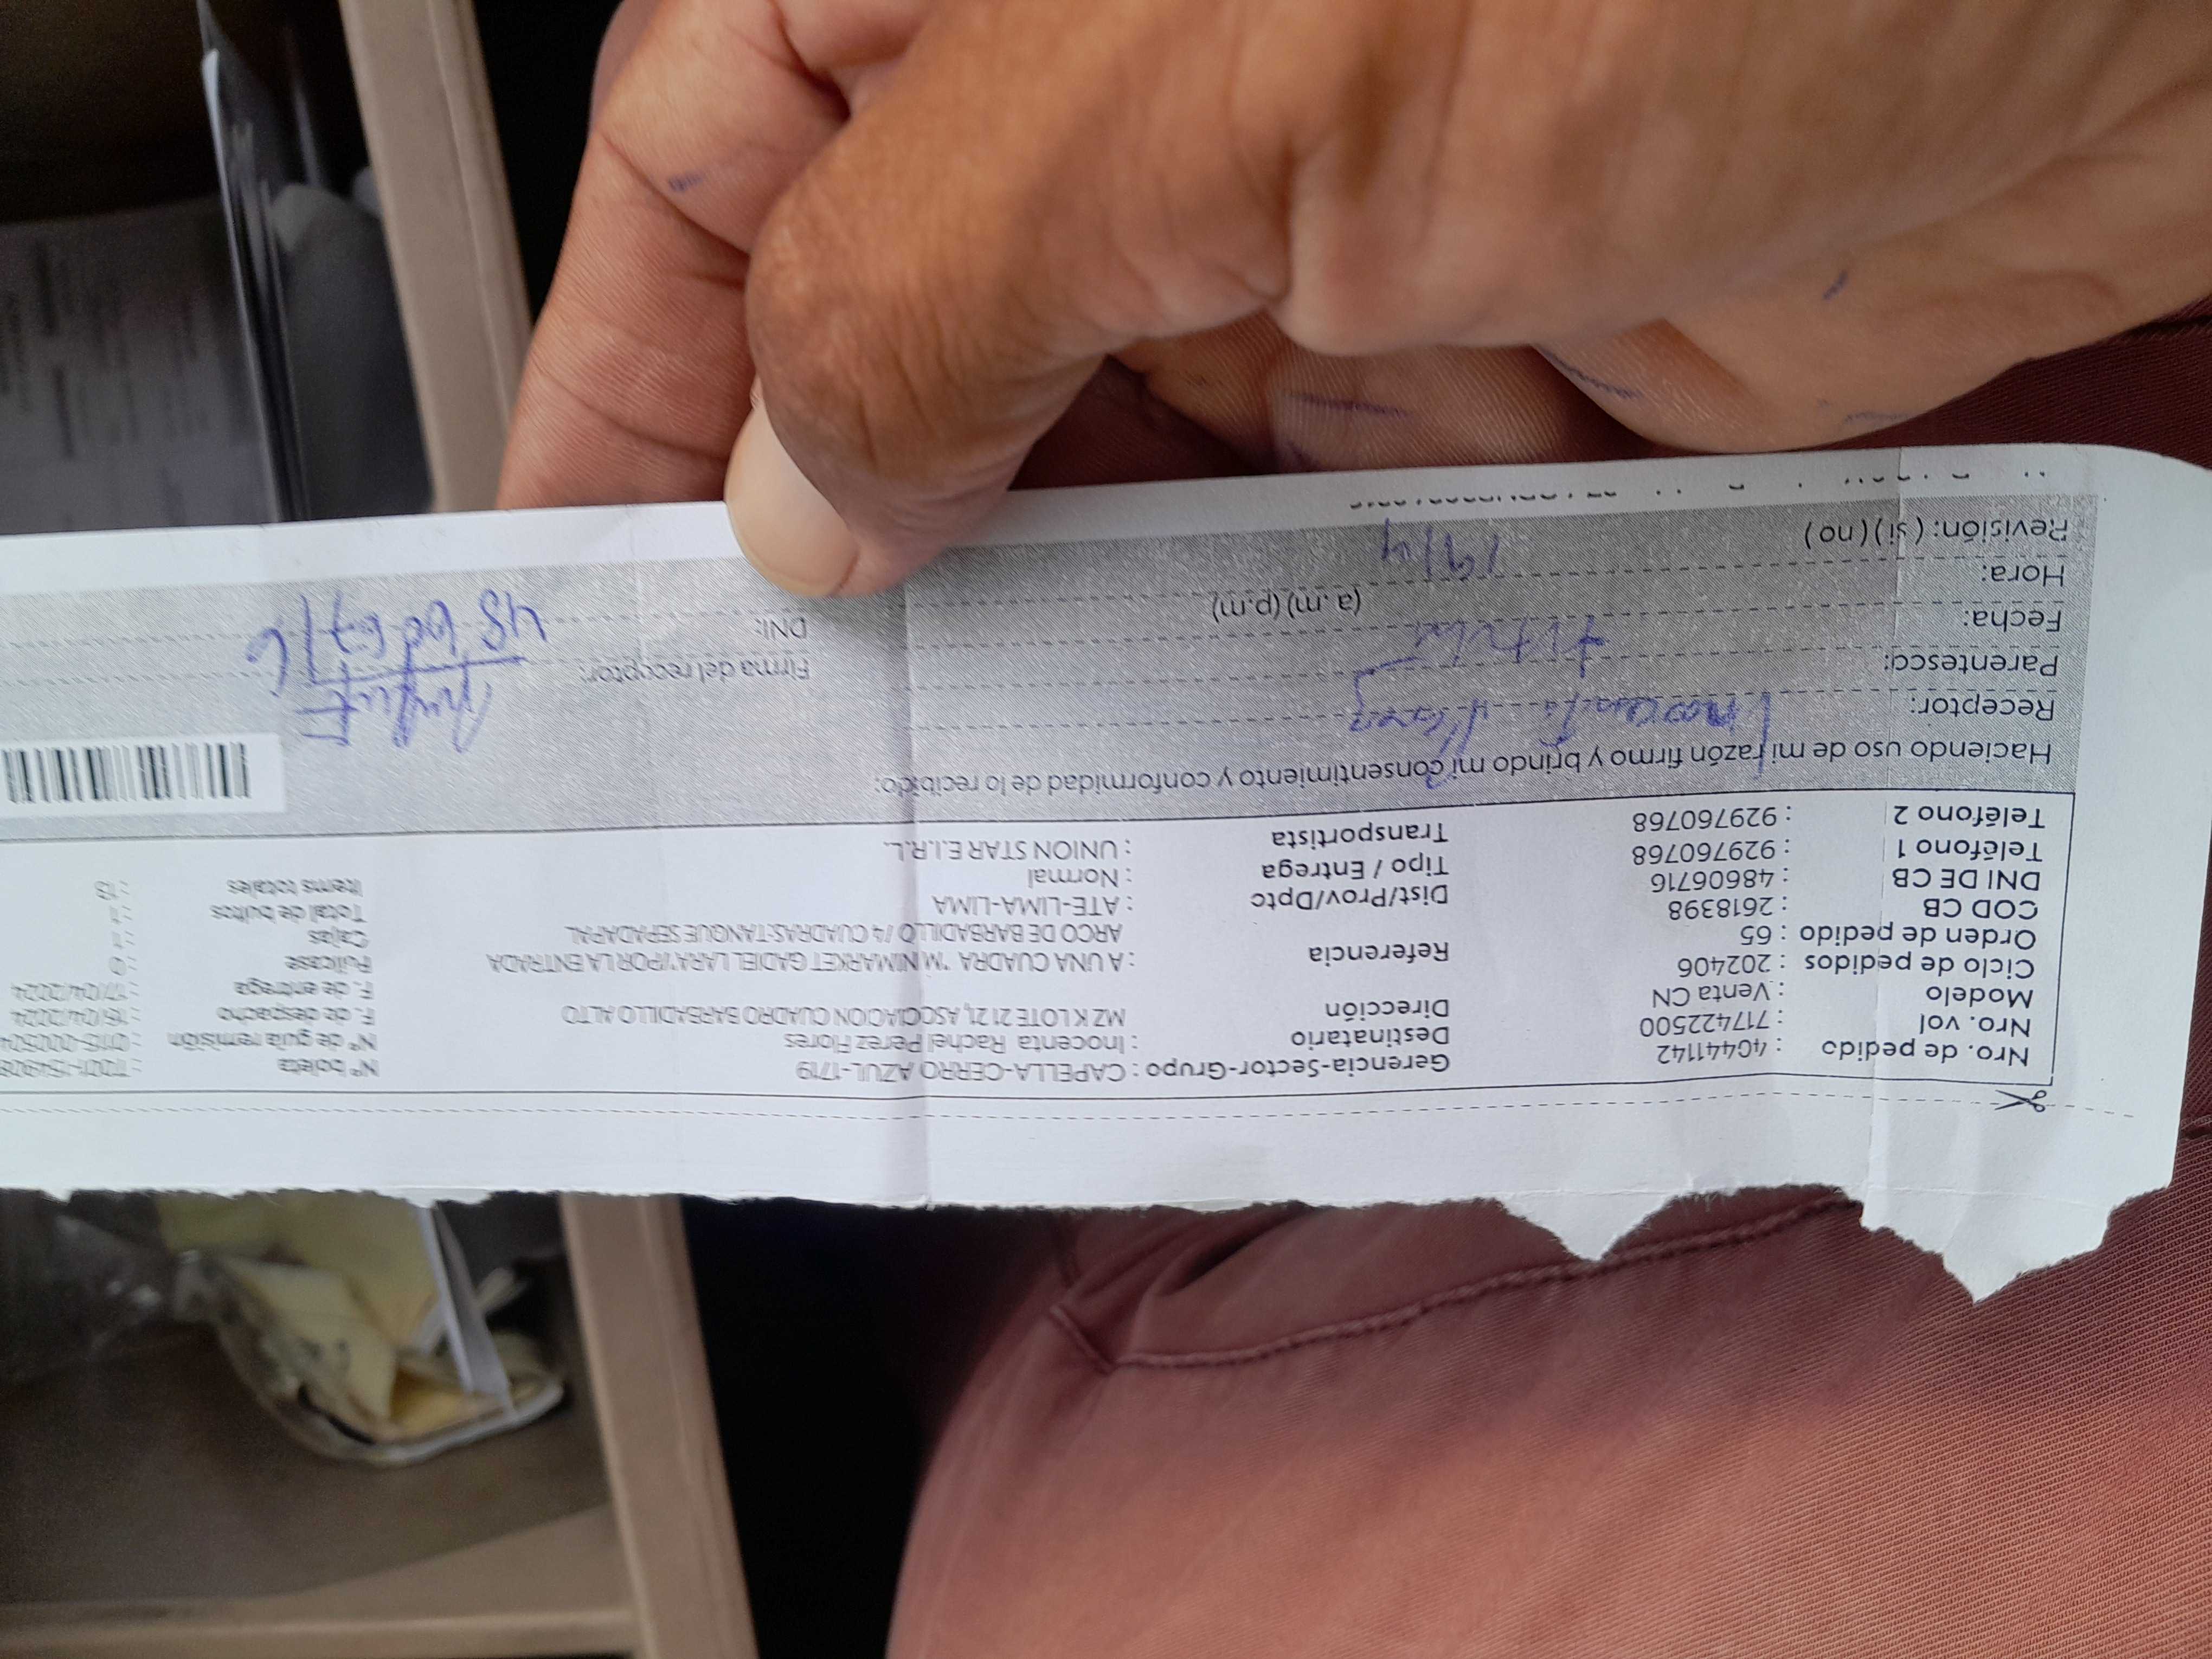 Nro. de pedido : 40441142
Nro. vol : 717422500
Modelo : Venta CN
Ciclo de pedidos : 202406
Orden de pedido : 65
COD CB : 2618398
DNI DE CB : 48606716
Teléfono 1 : 929760768
Teléfono 2 : 929760768
Gerencia-Sector-Grupo : CAPELLA-CERRO AZUL-1719
Destinatario : Inocenta Rachel Perez Flores
Dirección MZ K LOTE 21 21, ASOCIACION CUADRO BARBADILLO ALTO
Referencia : A UNA CUADRA "MINIMARKET GADIEL LARA"/POR LA ENTRADA
ARCO DE BARBADILLO /4 CUADRAS-TANQUE SEPADAPAL
Dist/Prov/Dpto : ATE-LIMA-LIMA
Tipo / Entrega : Normal
Transportista : UNION STAR E.I.R.L.
Nº boleta
Nº de guia remisión
F. de despacho : 16/04/2024
F. de entrega : 17/04/2024
Fullcase : 0
Cajas : 1
Total de bultos : 1
Items totales : 13
Haciendo uso de mi razón firmo y brindo mi consentimiento y conformidad de lo recibido:
Receptor: Inocenta
Parentesco: titular
Fecha: 19/4
Hora: (a.m) (p.m)
Revisión: ( si ) ( no )
Firma del receptor:
DNI: 48606716